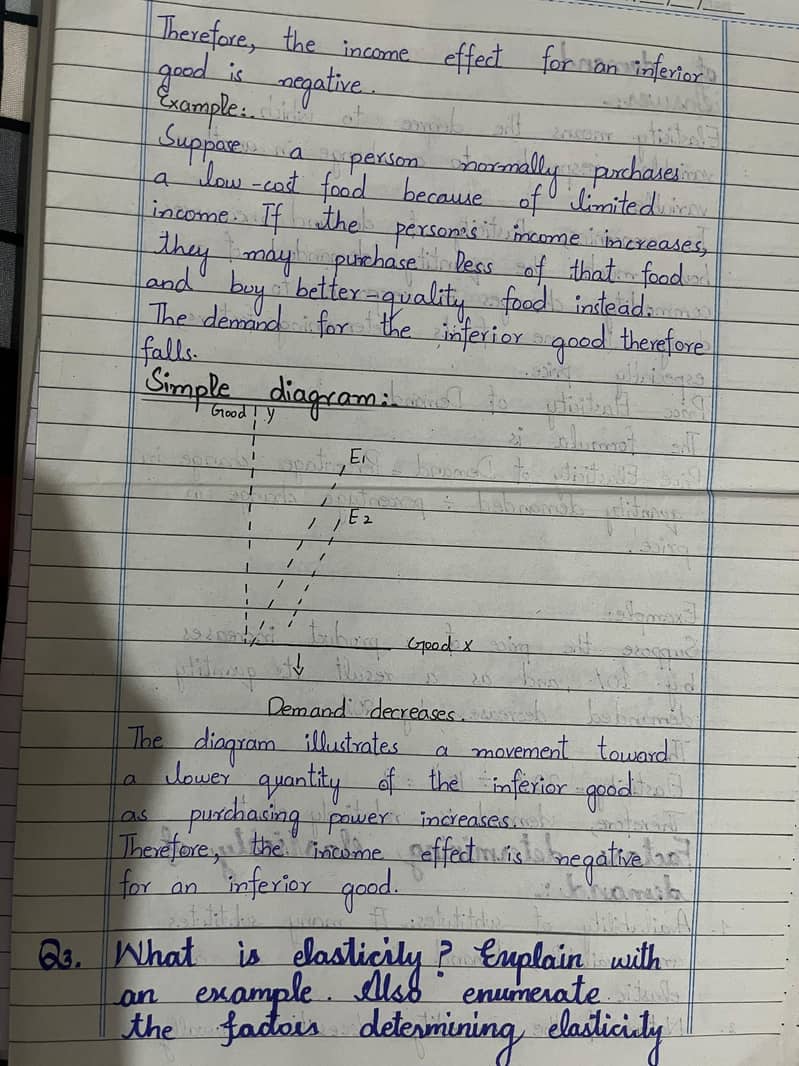 Therefore, the income effect for an inferior
good is negative.
Example:.
Suppose a person normally purchases
a low-cost food because of limited
income. If the person's income increases,
they may purchase less of that food
and buy better-quality food instead.
The demand for the inferior good therefore
falls.
Simple diagram:.
Good Y
E1
E2
Good x
↓
Demand decreases.
The diagram illustrates a movement toward
a lower quantity of the inferior good
as purchasing power increases.
Therefore, the income effect is negative
for an inferior good.
Q3. What is elasticily? Explain with
an example. Also enumerate
the factors determining elasticity